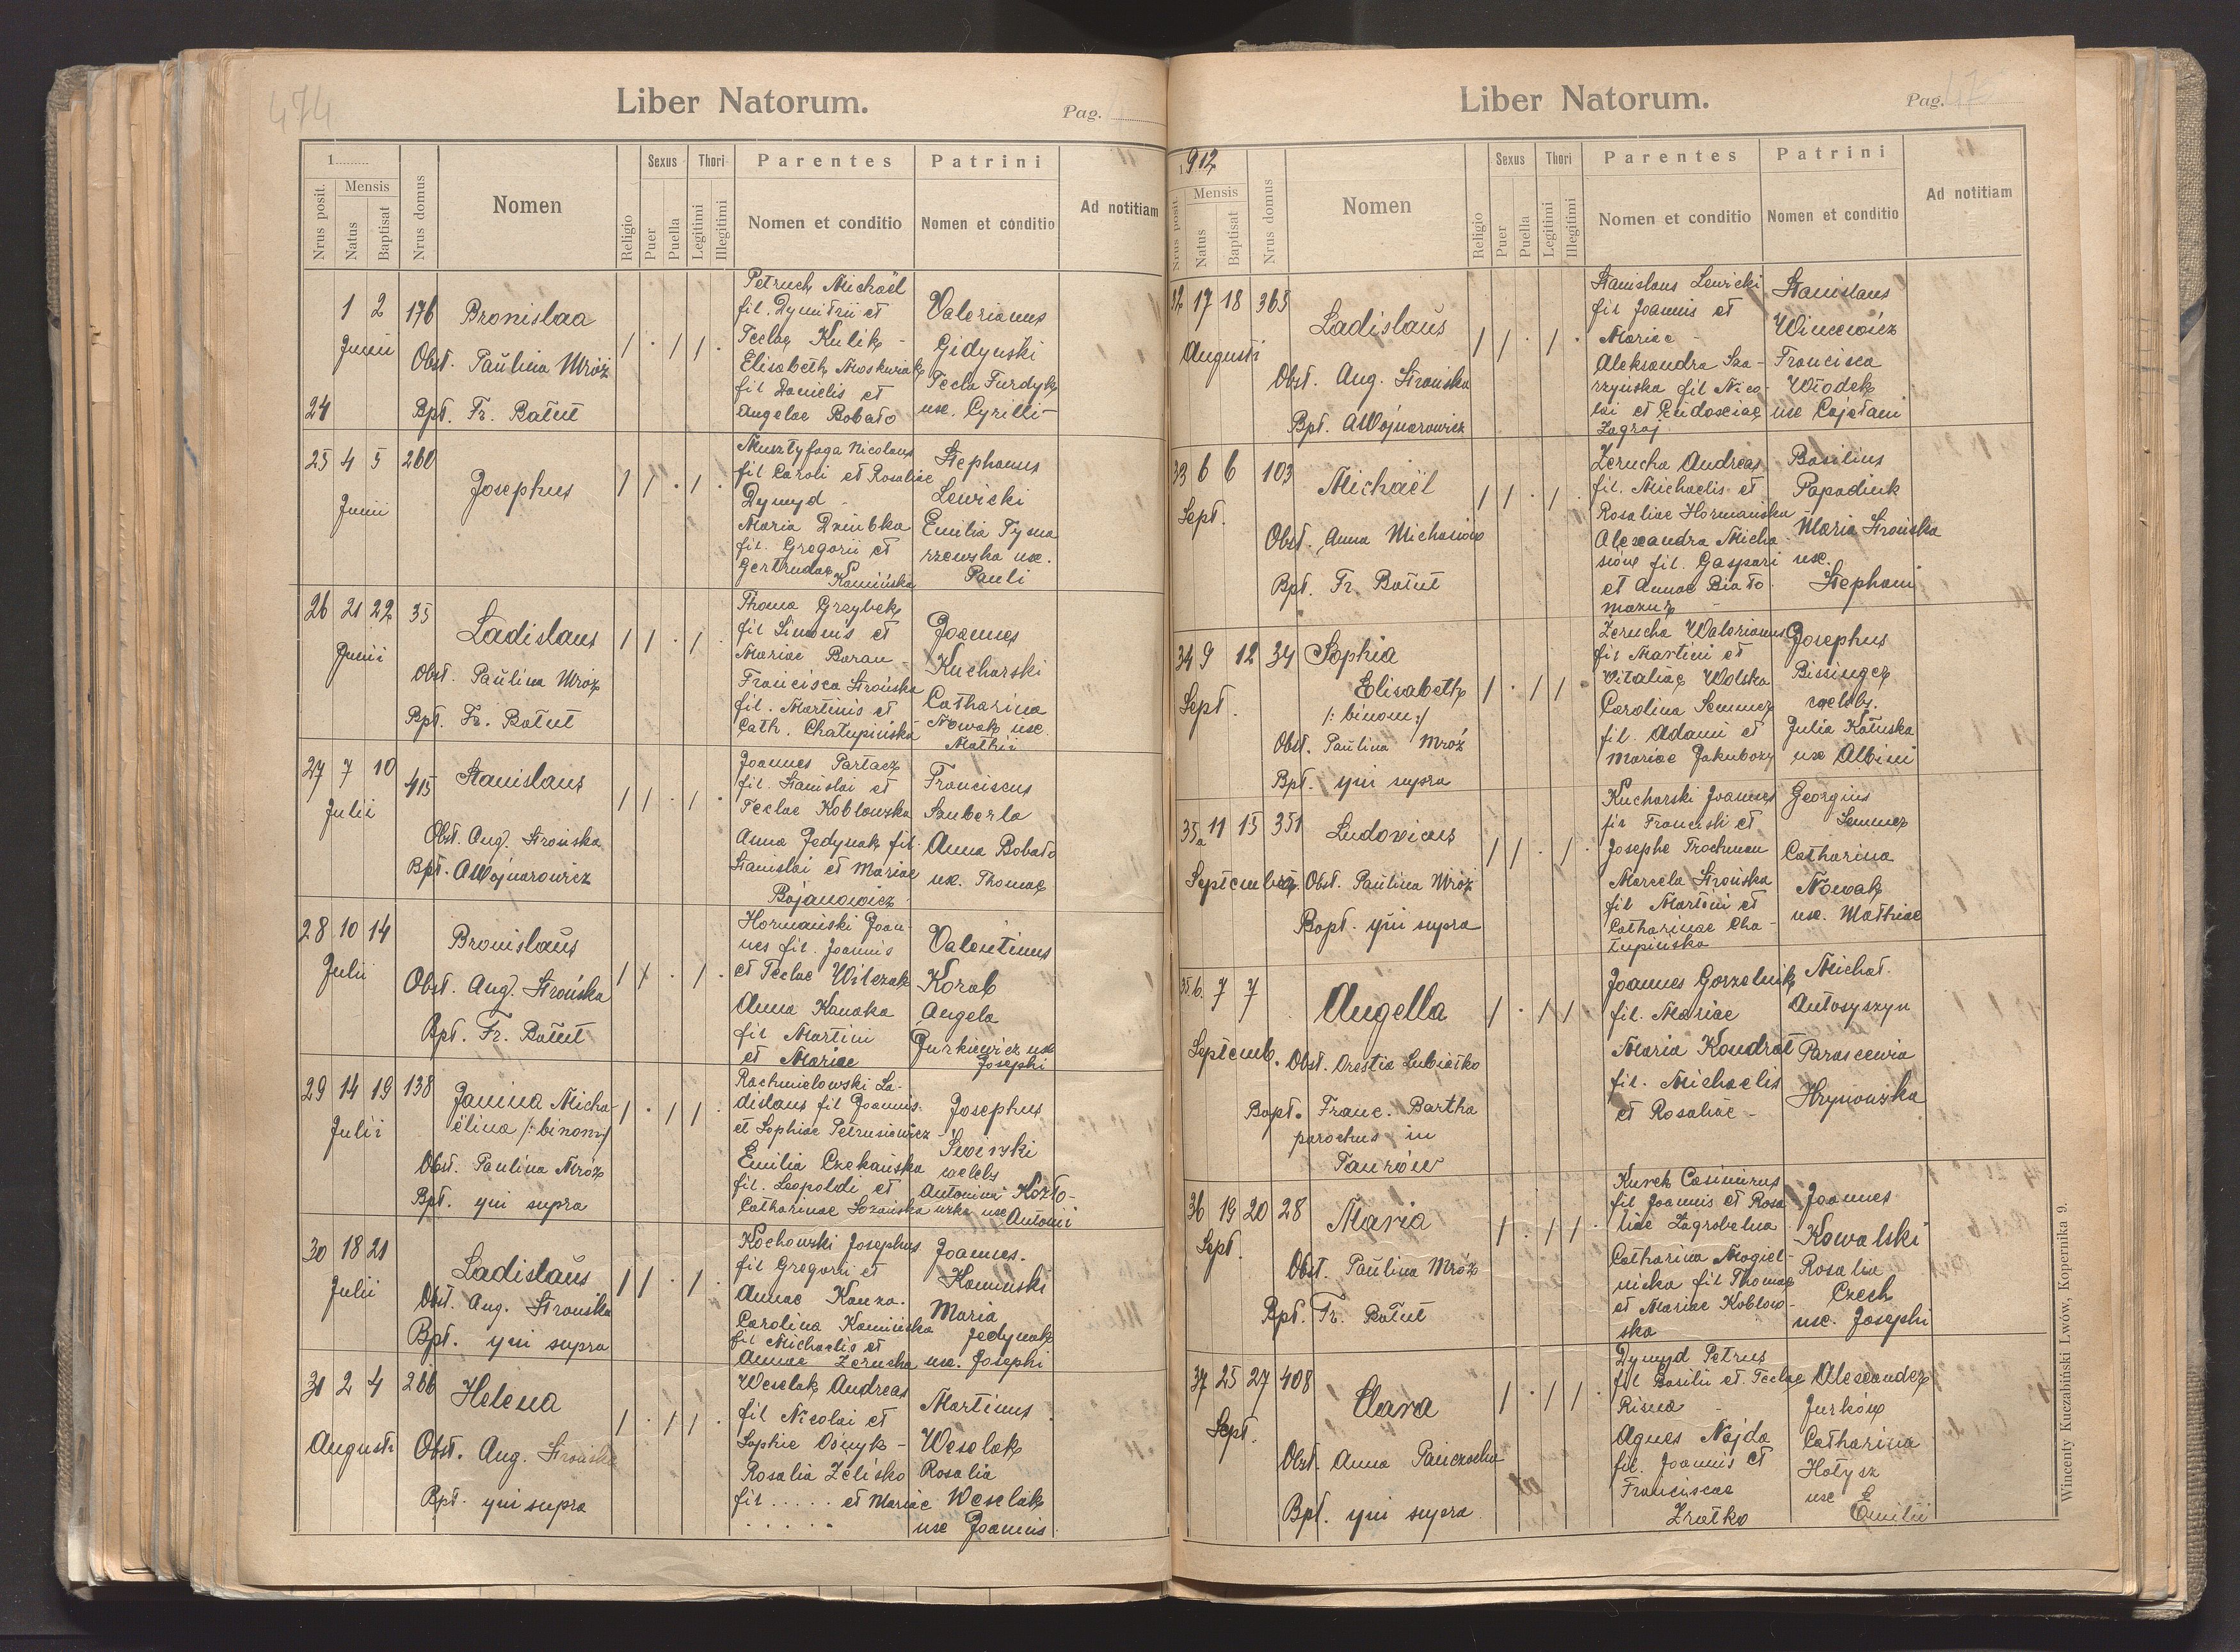 474
Liber Natorum.
Pag.
1
Nrus posit.
Mensis
Natus
Baptisat
Nrus domus
Nomen
Religio
Sexus
Puer
Puella
Thori
Legitimi
Illegitimi
Parentes
Nomen et conditio
Patrini
Nomen et conditio
Ad notitiam
24
1 2 176
Junii
Bronislaa
Obst. Paŭlina Mróz
Bpt. Fr. Batut
Petruch Michaël
fil. Dymitrii et
Teclae Kulik -
Elisabeth Moskwiak
fil Danielis et
Angelae Bobato
Valerianus
Gidyński
Tecla Furdyk
uxe. Cyrilli-
25 4 5 260
Junii
Josephus
Musztyfaga Nicolaus
fil Caroli et Rosaliae
Dymyd -
Maria Dziubka
fil. Gregorii et
Gertrudae
Kamińska
Stephanus
Lewicki
Emilia Tyma
rzewska uxe.
Pauli
26 21 22 35
Junii
Ladislaus
Obst. Paŭlina Mróz
Bpt. Fr. Batut
Thoma Grzybek
fil Simonis et
Mariae Baran
Francisca Strońska
fil. Martinis et
Cath. Chałupińska
Joannes
Kucharski
Catharina
Nowak uxe.
Mathii
27 7 10 415
Julii
Stanislaus
Obst. Aug. Strońska
Bpt. A Wojnarowicz
Joannes Partacz
fil. Stanislai et
Teclae Kobłowska
Anna Jedynak fil.
Stanislai et Mariae
Bojanowicz
Franciscus
Szuberla
Anna Bobato
uxe. Thomae
28 10 14
Julii
Bronislaŭs
Obst. Aug. Strońska
Bpt. Fr. Batut
Hormański Joan-
nes fil. Joannis
et Teclae Witczak
Anna Kanaka
fil Martini
et Mariae
Valentinus
Korab
Angela
Jurkiewicz uxe
Josephi
29 14 19 138
Julii
Janina Micha-
ëlina /: binom:/
Obst. Paulina Mróz
Bpt. qui supra
Rachmielowski La-
dislaus fil Joannis
et Sophiae Petrusiewicz
Emilia Czekańska
fil. Leopoldi et
Catharinae Łozańska
Josephus
Świrski
caelebs
Antonina Kozło-
wska uxe Antonii
30 18 21
Julii
Ladislaŭs
Obst. Aug. Strońska
Bpt. qui supra
Kochowski Josephus
fil Gregorii et
Annae Kanza.
Carolina Kamińska
fil Michaelis et
Annae Zerucha
Joannes.
Kamiński
Maria
Jedynak
uxe. Josephi
31 2 4 266
Augusti
Helena
Obst. Aug. Strońska
Bpt. qui supra
Weselak Andreas
fil Nicolai et
Sophie Ośnyk -
Rosalia Zelisko
fil ..... et Mariae
.....
Martinus
Weselak
Rosalia
Weselak
uxe Joannis
Liber Natorum.
Pag. 47
1912
Nrus posit.
Mensis
Natus
Baptisat
Nrus domus
Nomen
Religio
Sexus
Puer
Puella
Thori
Legitimi
Illegitimi
Parentes
Nomen et conditio
Patrini
Nomen et conditio
Ad notitiam
32 17 18 365
Augusti
Ladislaŭs
Obst. Aug. Strońska
Bpt. A Wójnarowicz
Stanislaus Lewicki
fil Joannis et
Mariae -
Aleksandra Sza-
rzyńska fil Nico-
lai et Eudoxiae
Zagraj
Stanislaus
Wincewicz
Francisca
Włodek
uxe Cajetani
33 6 6 103
Sept.
Michaël
Obst. Anna Michasiów
Bpt. Fr. Batut
Zerucha Andreas
fil. Michaelis et
Rosaliae Hormańska
Alexandra Micha-
siów fil. Gaspari
et Annae Biało-
mazur
Basilius
Papadiuk
Maria Strońska
uxe.
Stephani
34 9 12 34
Sept.
Sophia
Elisabeth
/: binom:/
Obst. Paŭlina Mróz
Bpt. qui supra
Zerucha Walerianus
fil Martini et
Vitaliae Wolska
Carolina Semmer
fil. Adami et
Mariae Jakubozy
Josephus
Bissinger
caelebs.
Julia Kałuska
uxe Albini
35a 11 15 351
Septembris
Ludovicus
Obst. Paŭlina Mróz
Bapt. qui supra
Kucharski Joannes
fil Francisci et
Josephe Trochman
Marcela Strońska
fil Martini et
Catharinae Cha-
łupińska
Georgius
Semmer
Catharina
Nowak
uxe. Mathiae
35b. 7 7
Septemb.
Angella
Obst. Orestia Lubiatko
Bapt. Franc. Bartha
parochus in
Taurów
Joannes Gorzelnik
fil. Mariae
Maria Kondrat
fil. Michaelis
et Rosaliae -
Michał.
Antoszyszyn
Parascewia
Hryniowska
36 19 20 28
Sept.
Maria
Obst. Paŭlina Mróz
Bpt. Fr. Batut
Kurek Casimirus
fil Joannis et Rosa
liae Zagrobelna
Catharina Mogiel-
nicka fil Thomae
et Mariae Koblow-
ska
Joannes
Kowalski
Rosalia
Czech
uxe. Josephi
37 25 27 408
Sept.
Clara
Obst. Anna Panczocha
Bpt. qui supra
Dymyd Petrus
fil Basilii et Teclae
Risna
Agnes Najda
fil. Joannis et
Franciscae
Zratko
Alexander
Jurków
Catharina
Hołysz
uxe
Emilii
Wincenty Kuczabiński Lwów, Kopernika 9.